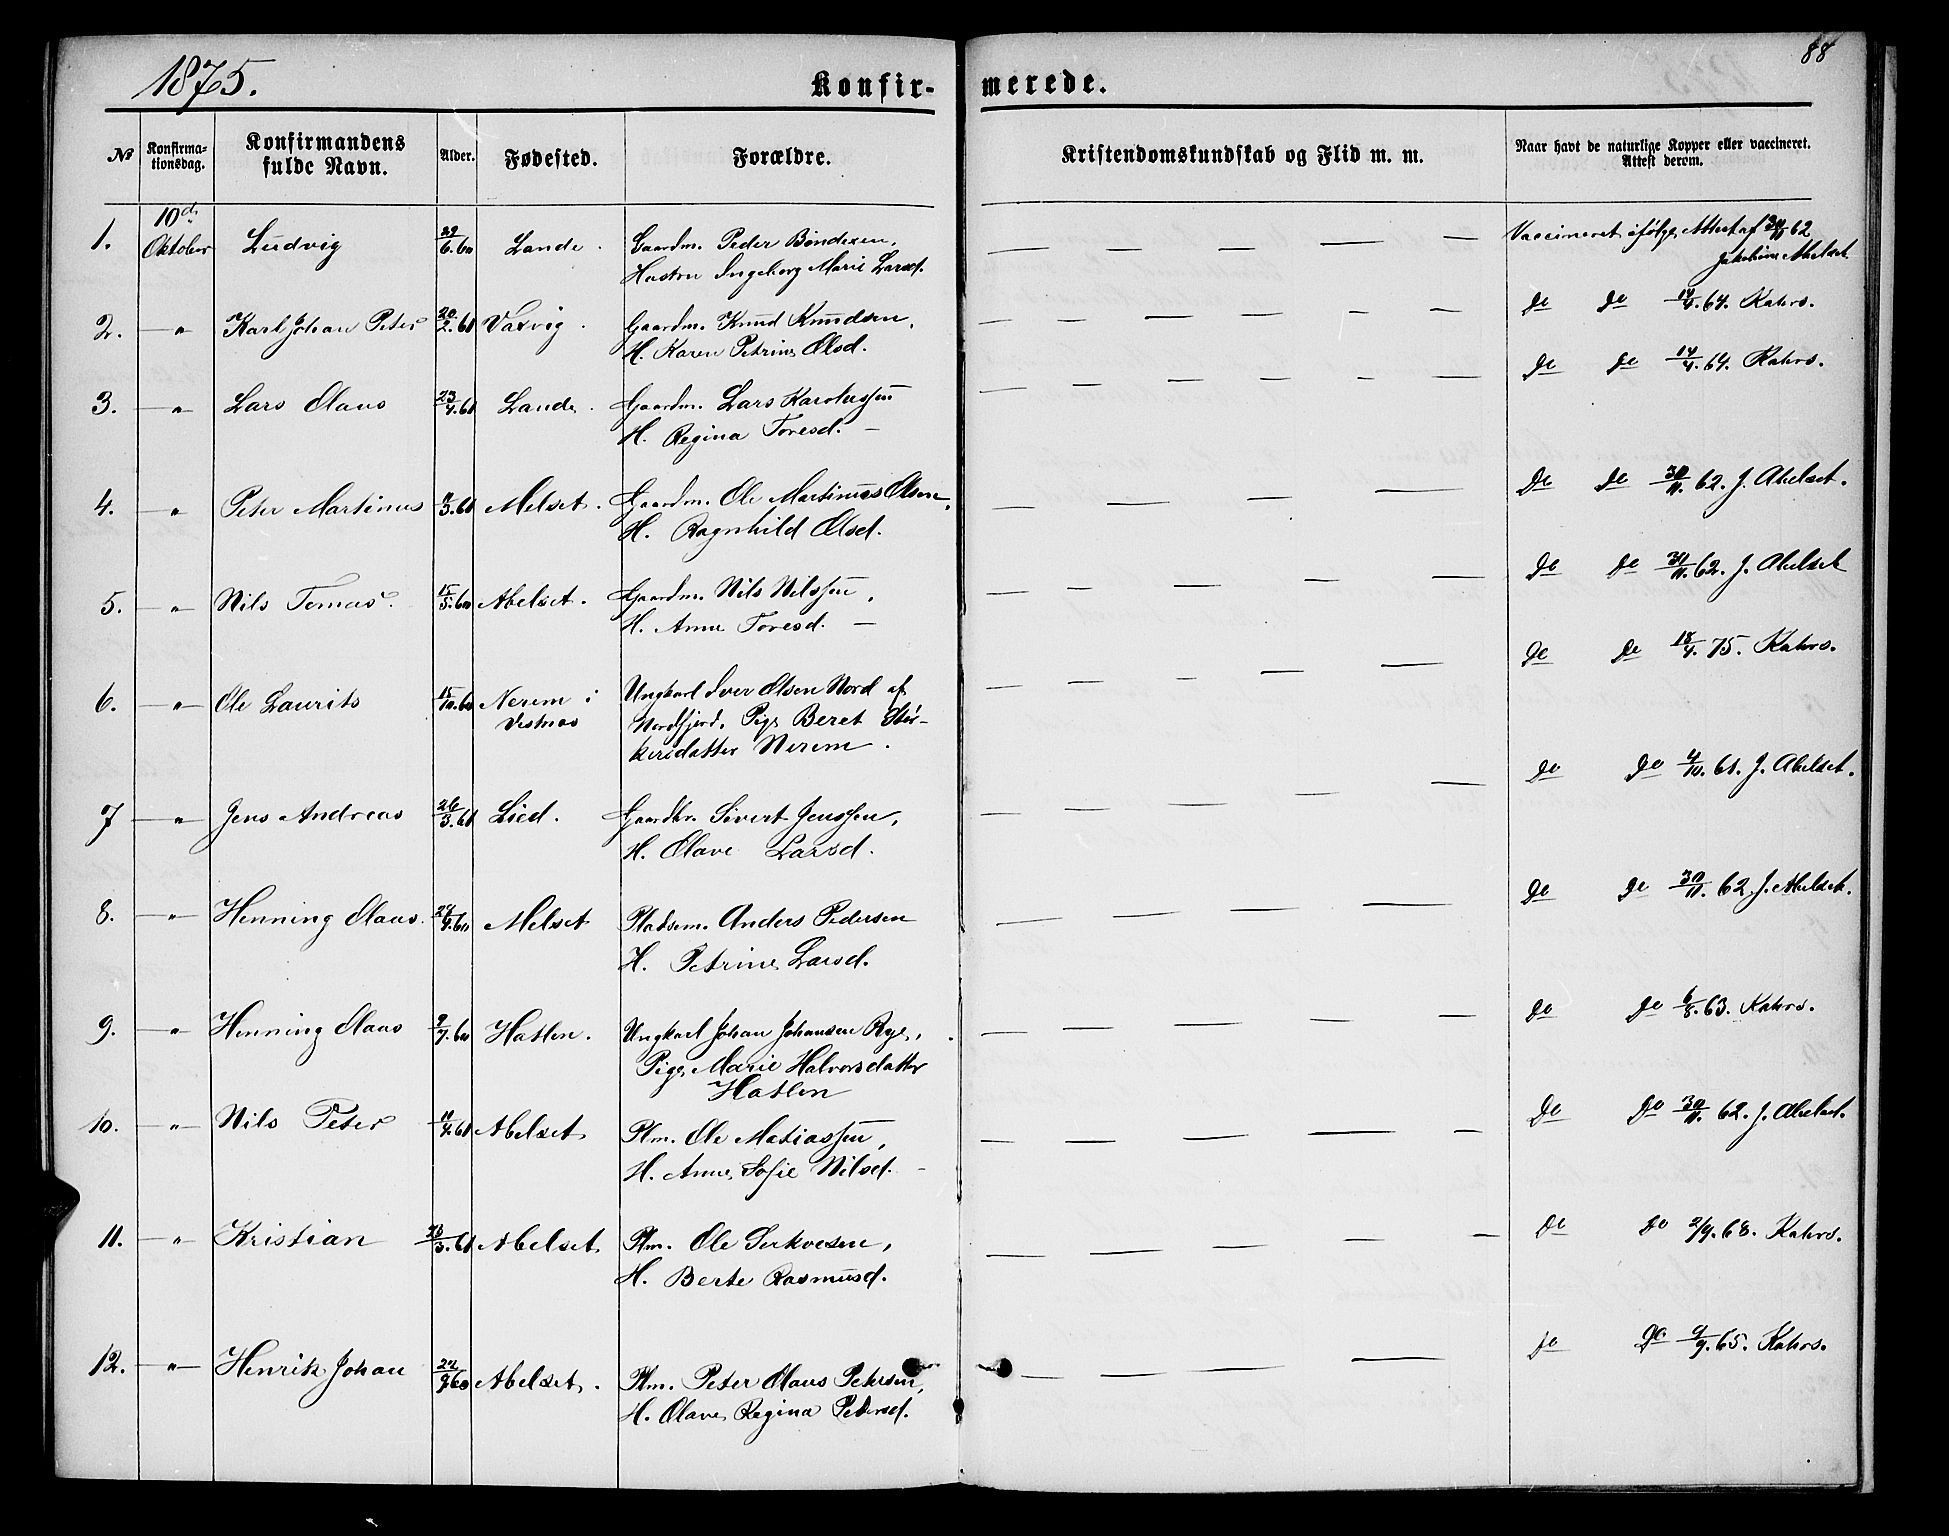 88
1875.
Konfir-merede.
№ Konfirma-tionsdag. Konfirmandens fulde Navn. Alder. Fødested. Forældre. Kristendomskundskab og Flid m. m. Naar havt de naturlige Kopper eller vaccineret. Attest derom.
1. 10de Oktober Ludvig 29/6.60 Lande. Gaardm. Peder Bendixen, Vaccineret ifølge Attest af 30/11 62
Hustru Ingeborg Marie Larsd. Abelset.
2. — " — Karl Johan Peter 20/2.61 Vaxvig. Gaardm. Knud Knudsen, do do 14/4.64. Kahrs.
H. Karen Petrine Olsd.
3. — " — Lars Olaus 23/4.61 Lande. Gaardm. Lars do do 14/4.64. Kahrs.
H. Regina Toresd. —
4. " Peter Martinus 7/3.61 Melset. Gaardm. Ole Martinus Olsen, do do 30/11.62. J. Abelset.
H. Ragnhild Olsd.
5. — " — Nils Tomas. 15/5.60 Abelset. Gaardm. Nils Nilssen, do do 30/11.62. J. Abelset
H. Anne Toresd. —
6. — " — Ole Laurits 15/10.60 Nerem i Vestnæs Ungkarl Iver Olsen Nord af do do 18/4.75. Kahrs.
Nordfjord. Pige Beret Stör-
kersdatter Nerem.
7 — " — Jens Andreas 26/3.61 Lied. Gaardbr. Sivert Jenssen, do do 4/10.61. J. Abelset.
H. Olave Larsd.
8. — " — Henning Olaus. 24/9.60 Melset Pladsem. Anders Pedersen do do 30/11.62. J. Abelset.
H. Petrine Larsd.
9. — " — Henning Olaus 9/7.60 Hatlen. Ungkarl Johan Johansen Rye, do do 6/8.63. Kahrs.
Pige Marie Halvorsdatter
Hatlen
10. — " — Nils Peter 11/4.61 Abelset Plm. Ole Matiassen, do do 30/11.62. J. Abelset.
H. Anne Sofie Nilsd. —
11. — " — Kristian /3.61 Abelset Plm. Ole Sirkvesen, do do 2/9.68. Kahrs.
H. Berte Rasmusd.
12. — " — Henrik Johan 22/9.60 Abelset. Plm. Peter Olaus Petersen, do do 9/9.65. Kahrs.
H. Olave Regina Pedersd.